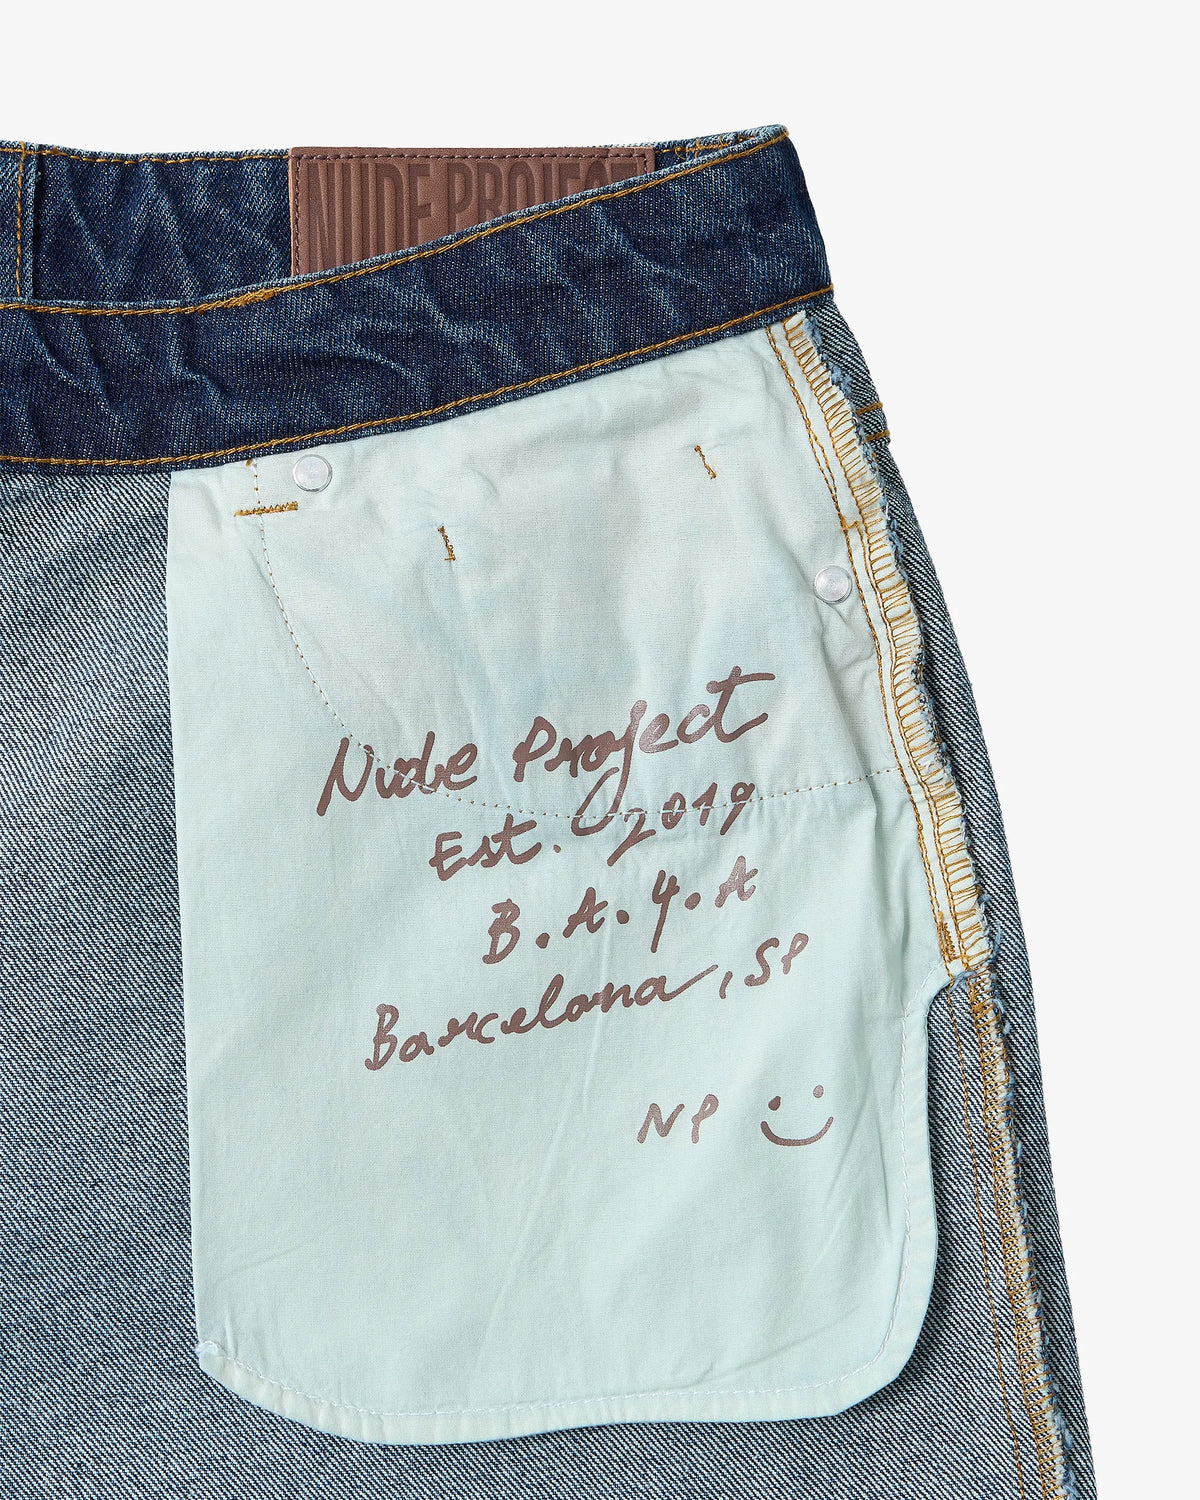 NUDE PROJECT
Nude Project
Est. 2019
B.A.4.A
Barcelona, SP
NP